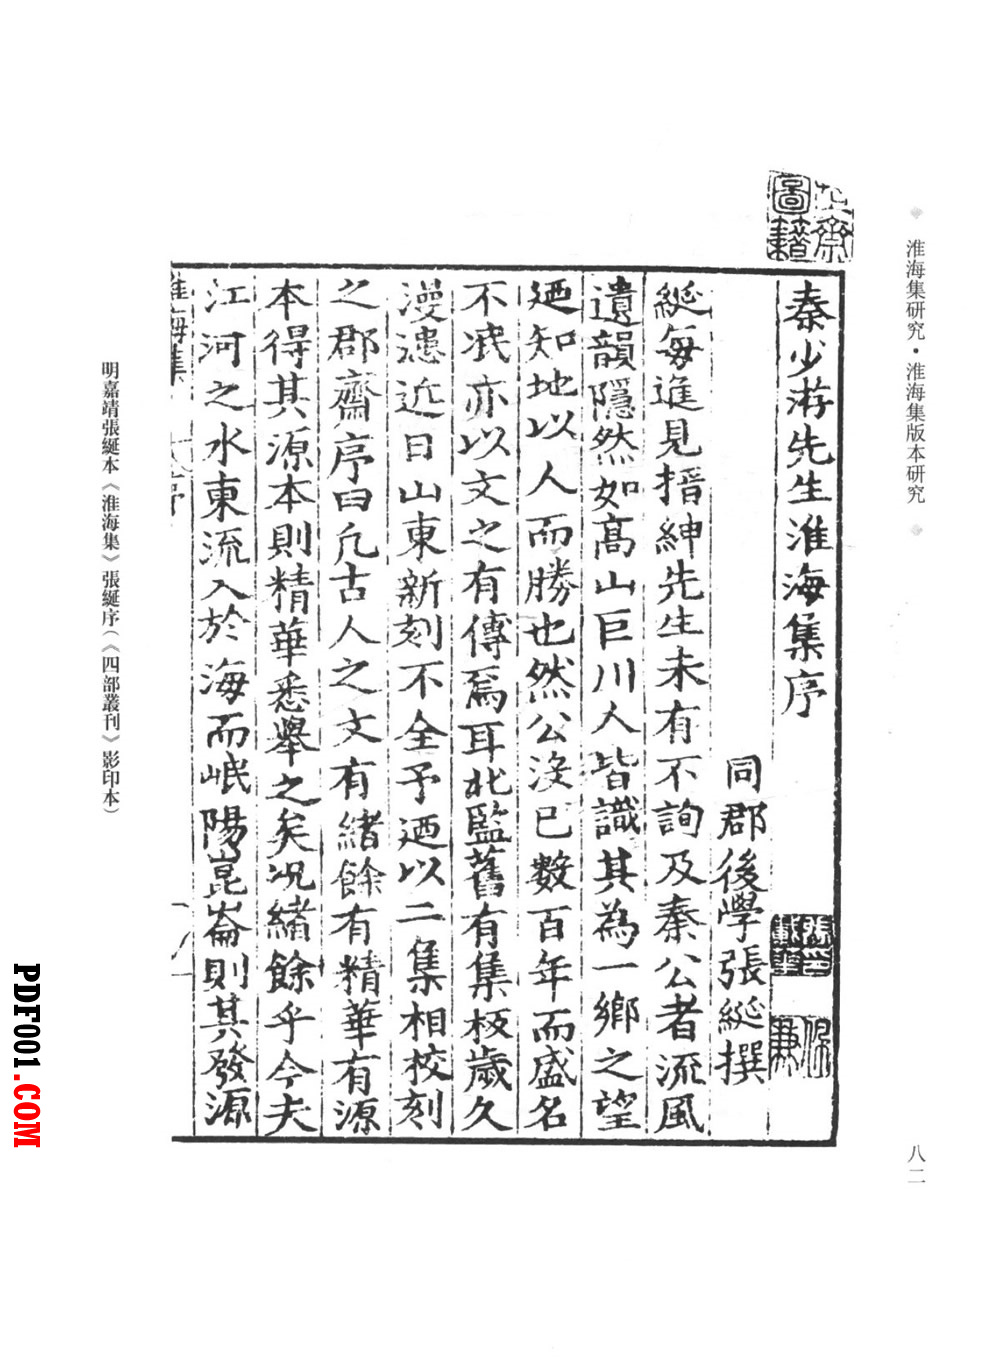 淮海集研究·淮海集版本研究
八二
秦少游先生淮海集序
同郡後學張綖撰
綖每進見搢紳先生未有不詢及秦公者流風
遺韻隱然如高山巨川人皆識其為一鄉之望
廼知地以人而勝也然公沒已數百年而盛名
不泯亦以文之有傳焉耳北監舊有集板歲久
漫漶近日山東新刻不全予廼以二集相校刻
之郡齋序曰凡古人之文有緒餘有精華有源
本得其源本則精華悉舉之矣况緒餘乎今夫
江河之水東流入於海而岷陽崑崙則其發源
淮海集 序
明嘉靖張綖本《淮海集》張綖序（《四部叢刊》影印本）
PDF001.COM